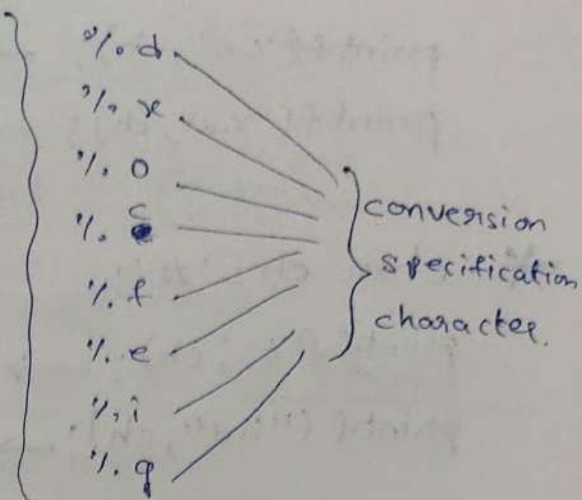 %d
%x
%o
%c
%f
%e
%i
%g
conversion
specification
character.